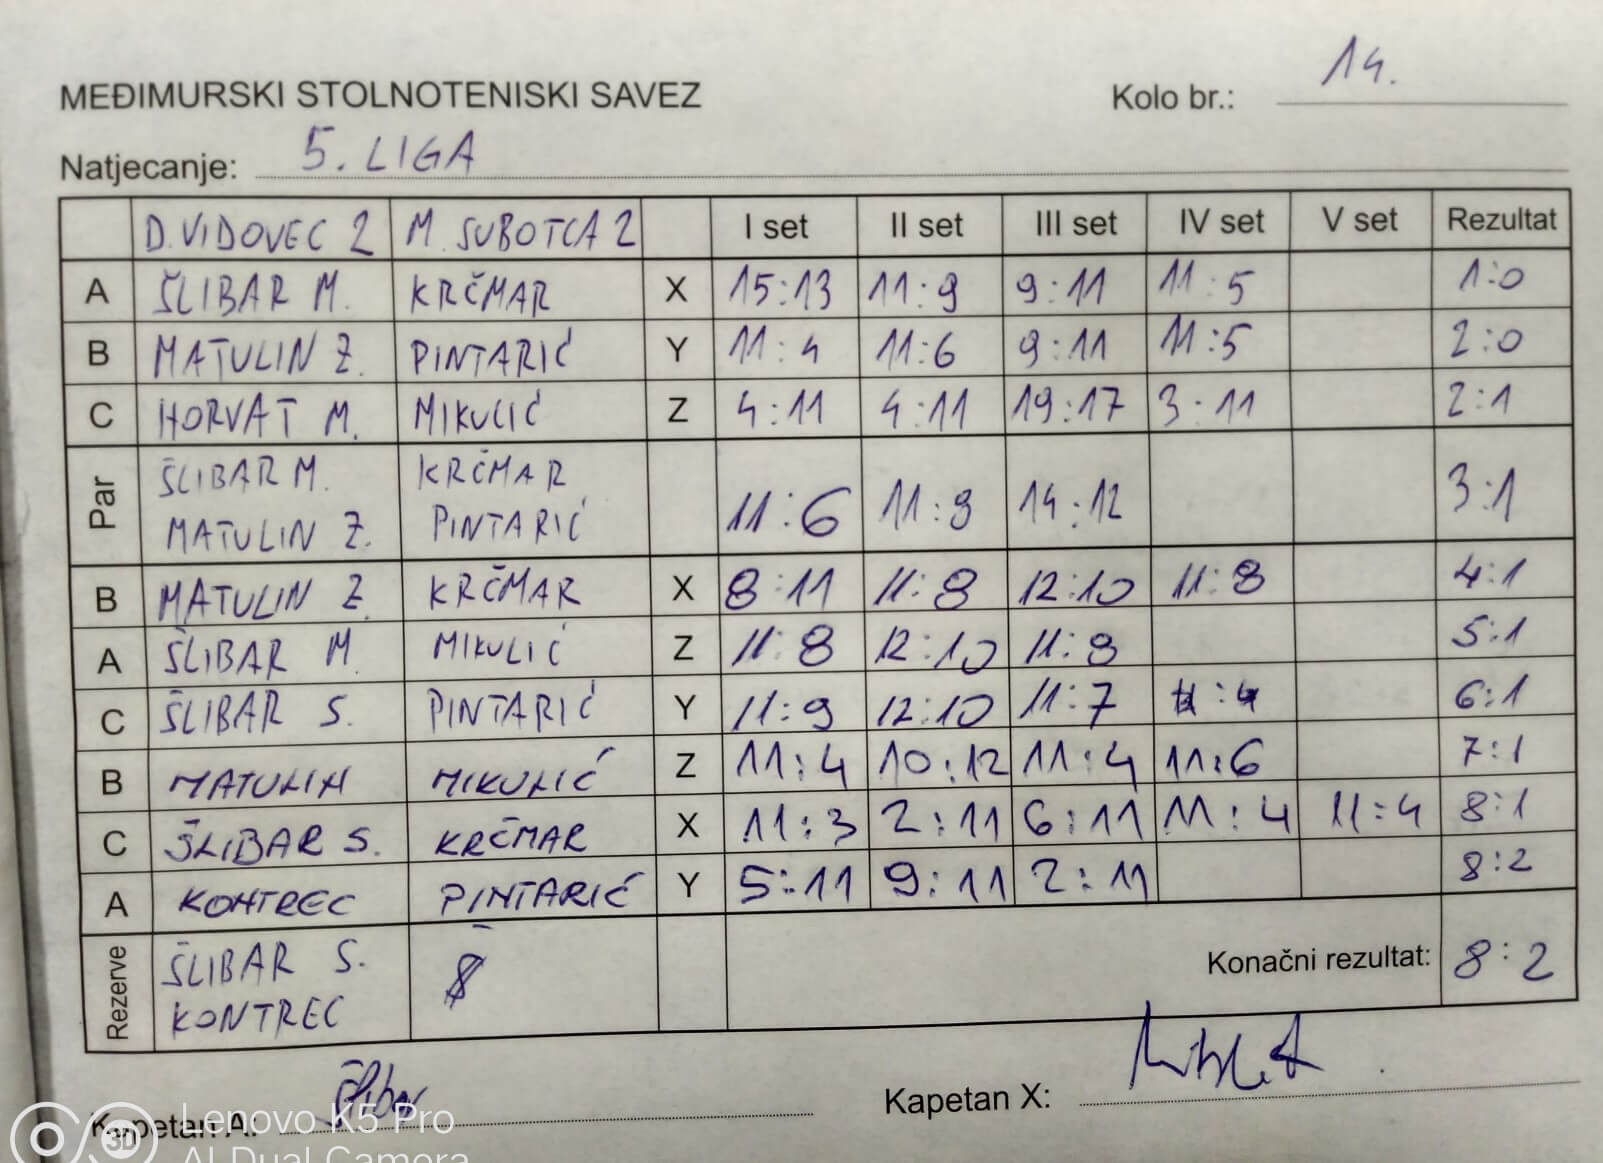 MEĐIMURSKI STOLNOTENISKI SAVEZ Kolo br.: 14.
Natjecanje: 5. LIGA
D. VIDOVEC 2 M. SUBOTCA 2 I set II set III set IV set V set Rezultat
A ŠLIBAR M. KRČMAR X 15:13 11:9 9:11 11:5 1:0
B MATULIN Z. PINTARIĆ Y 11:4 11:6 9:11 11:5 2:0
C HORVAT M. MIKULIĆ Z 4:11 4:11 19:17 3:11 2:1
Par ŠLIBAR M. KRČMAR
MATULIN Z. PINTARIĆ 11:6 11:9 14:12 3:1
B MATULIN Z. KRČMAR X 8:11 11:8 12:10 11:8 4:1
A ŠLIBAR M MIKULIĆ Z 11:8 12:10 11:9 5:1
C ŠLIBAR S. PINTARIĆ Y 11:9 12:10 11:7 6:1
B MATULIN MIKULIĆ Z 11:4 10:12 11:4 11:6 7:1
C ŠLIBAR S. KRČMAR X 11:3 2:11 6:11 11:4 11:4 8:1
A KONTREC PINTARIĆ Y 5:11 9:11 2:11 8:2
Rezerve ŠLIBAR S. Konačni rezultat: 8:2
KONTREC
Kapetan A: Šlibar Kapetan X:
Lenovo K5 Pro
AI Dual Camera